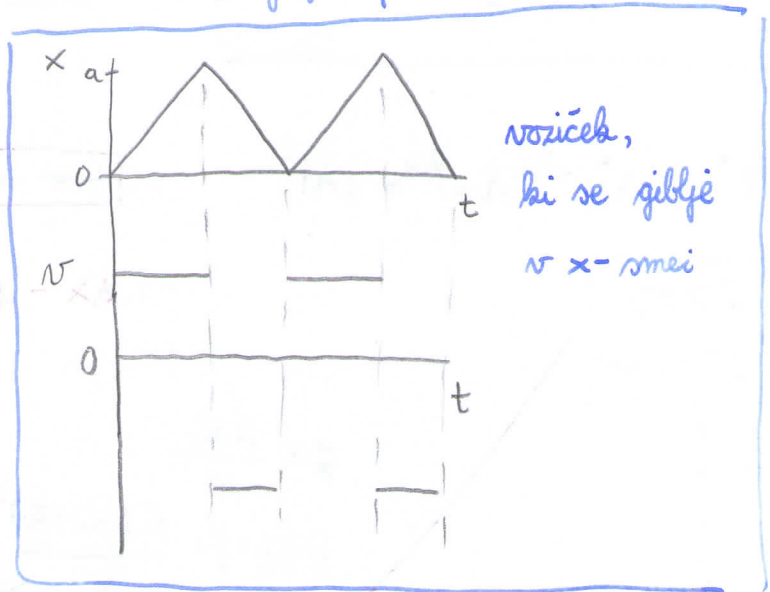 x a
0
t
v
0
t
voziček,
ki se giblje
v x-smei